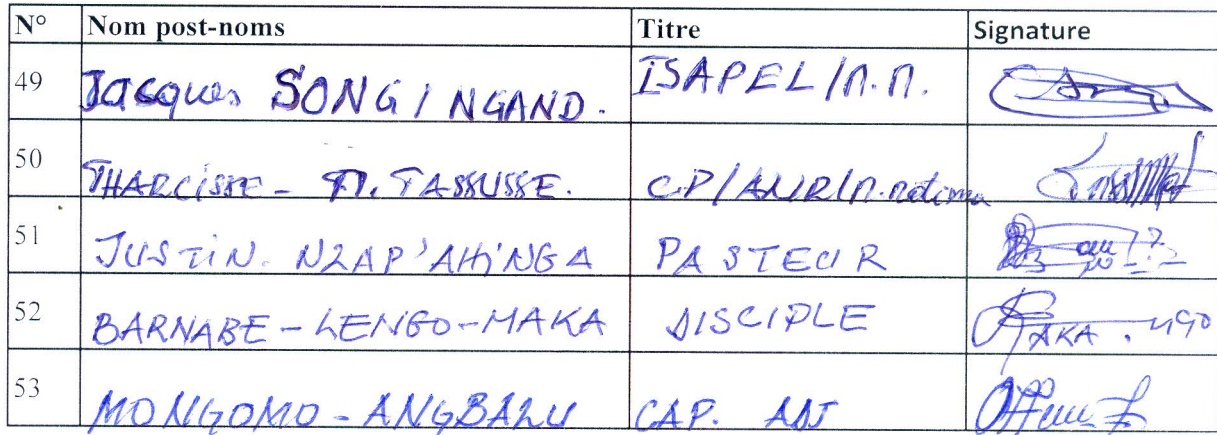 N° Nom post-noms Titre Signature
49 Jacques SONGI NGAND. ISAPEL/M.M.
50 THARCISSE - M. TASSUSSE. C.P/ANR/
51 JUSTIN. NZAP'AHiNGA PASTEUR
52 BARNABE-LENGO-MAKA DISCIPLE
53 MONGOMO-ANGBALU CAP. ADJ